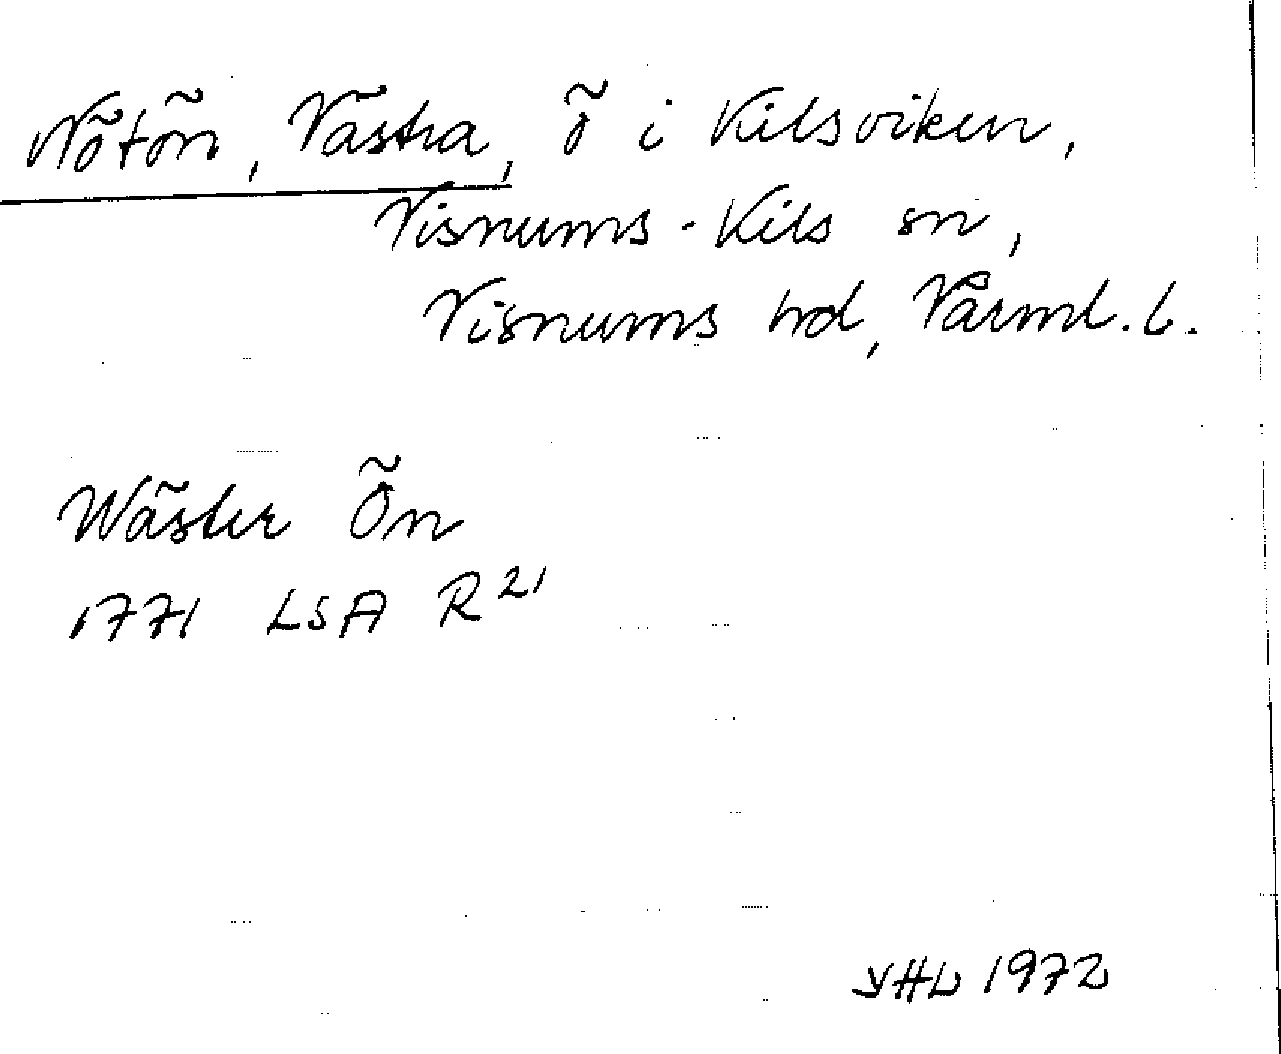 Nötön, Västra, ö i Kilsviken,
Visnums-Kils sn,
Visnums hd, Värml. l.
Wäster Ön
1771 LSA R 21
YHL 1972